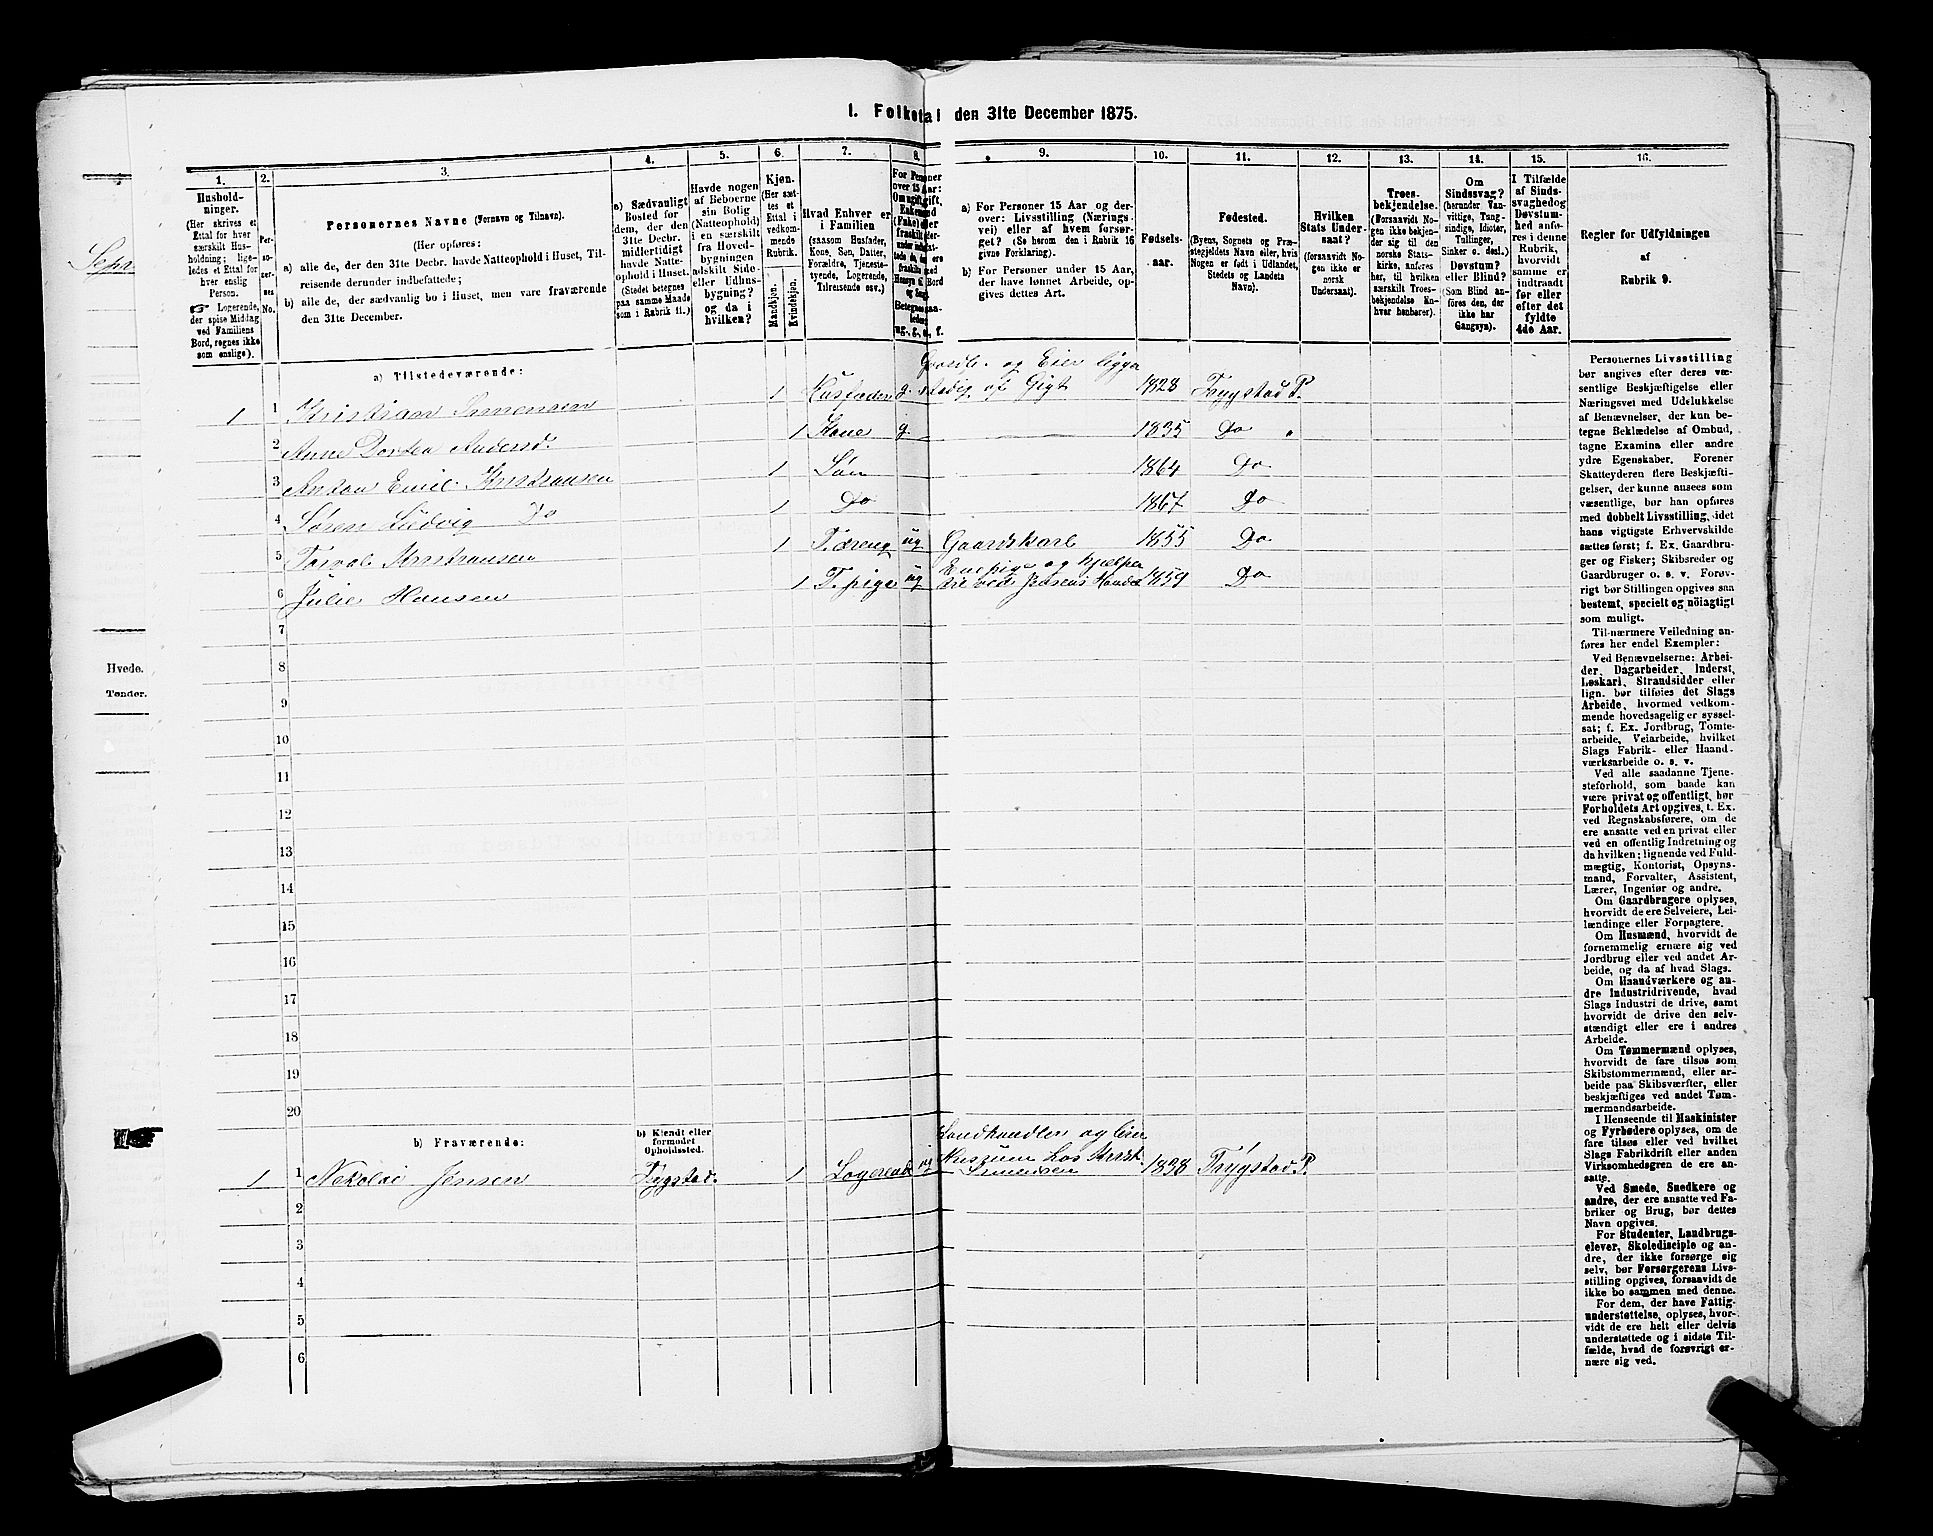 1. Folketal den 31te December 1875.
1.
Hushold-
ninger.
(Her skrives et
Ettal for hver
særskilt Hus-
holdning; lige-
ledes et Ettal for
hver enslig
Person.
Logerende,
der spise Middag
ved Familiens
Bord, regnes ikke
som enslige).
2.
Per-
so-
ner-
nes
No.
3.
Personernes Navne (Fornavn og Tilnavn).
(Her opføres:
a) alle de, der den 31te Decbr. havde Natteophold i Huset, Til-
reisende derunder indbefattede;
b) alle de, der sædvanlig bo i Huset, men vare fraværende
den 31te December.
4.
a) Sædvanligt
Bosted for
dem, der den
31te Decbr.
midlertidigt
havde Natte-
ophold i Huset.
(Stedet betegnes
paa samme Maade
som i Rubrik 11.)
5.
Havde nogen
af Beboerne
sin Bolig
(Natteophold)
i en særskilt
fra Hoved-
bygningen
adskilt Side-
eller Udhus-
bygning?
og da i
hvilken?
6.
Kjøn.
(Her sæt-
tes et
Ettal i
vedkom-
mende
Rubrik.
Mandkjøn.
Kvindekjøn.
7.
Hvad Enhver er
i Familien
(saasom Husfader,
Kone, Søn, Datter,
Forældre, Tjeneste-
tyende, Logerende,
Tilreisende osv.)
8.
For Personer
over 15 Aar:
9.
a) For Personer 15 Aar og der-
over: Livsstilling (Nærings-
vei) eller af hvem forsør-
get? (Se herom den i Rubrik 16
givne Forklaring).
b) For Personer under 15 Aar,
der have lønnet Arbeide, op-
gives dettes Art.
10.
Fødsels-
aar.
11.
Fødested.
(Byens, Sognets og Præ-
stegjeldets Navn eller, hvis
Nogen er født i Udlandet,
Stedets og Landets
Navn).
12.
Hvilken
Stats Under-
saat?
(forsaavidt No-
gen ikke er
norsk
Undersaat).
13.
Troes-
bekjendelse.
(Forsaavidt No-
gen ikke bekjen-
der sig til den
norske Stats-
kirke, anføres
her, til hvilken
særskilt Troes-
bekjendelse En-
hver henhører).
14.
Om
Sindssvag?
(herunder Van-
vittige, Tung-
sindige, Idioter,
Tullinger,
Sinker o. desl.).
Døvstum?
eller Blind?
(Som Blind an-
føres den, der
ikke har
Gangsyn).
15.
I Tilfælde
af Sinds-
svaghed og
Døvstum-
hed anfø-
res i denne
Rubrik,
hvorvidt
samme er
indtraadt
før eller
efter det
fyldte
4de Aar.
16.
Regler for Udfyldningen
af
Rubrik 9.
a) Tilstedeværende:
1 1 Kristian Simensen 1 Husfader g. Gaardbr. og Eier ligger stadig af Gigt 1828 Trygstad P.
2 Anne Dortea Andersd. 1 Kone g. 1835 Do "
3 Anton Emil Kristiansen 1 Søn 1864 Do
4 Søren Ludvig Do 1 Do 1867 Do
5 Torval Kristiansen 1 T. dreng ug Gaardskarl 1855 Do
6 Julie Hansen 1 T. pige ug 1859 Do
7
8
9
10
11
12
13
14
15
16
17
18
19
20
b) Fraværende:
b) Kjendt eller
formodet
Opholdssted.
1 1 Nikolai Jensen Trygstad. 1 Logerende ug Landhandler og Eier 1838 Trygstad P.
2
3
4
5
6
Personernes Livsstilling
bør angives efter deres væ-
sentlige Beskjæftigelse eller
Næringsvei med Udelukkelse
af Benævnelser, der kun be-
tegne Beklædelse af Ombud,
tagne Examina eller andre
ydre Egenskaber. Forener
Skatteyderen flere Beskjæfti-
gelser, der kunne ansees som
væsentlige, bør han opføres
med dobbelt Livsstilling, idet
hans vigtigste Erhvervskilde
sættes først; f. Ex. Gaardbru-
ger og Fisker; Skibsreder og
Gaardbruger o. s. v. Forøv-
rigt bør Stillingen opgives saa
bestemt, specielt og nöiagtigt
som muligt.
Til nærmere Veiledning an-
føres her endel Exempler:
Ved Benævnelserne: Arbei-
der, Dagarbeider, Inderst,
Løskarl, Strandsidder eller
lign. bør tilføies det Slags
Arbeide, hvormed vedkom-
mende hovedsagelig er syssel-
sat; f. Ex. Jordbrug, Tomte-
arbeide, Veiarbeide, hvilket
Slags Fabrik- eller Haand-
værksarbeide o. s. v.
Ved alle saadanne Tjene-
steforhold, som baade kan
være privat og offentligt, bør
Forholdets Art opgives, t. Ex.
ved Regnskabsførere, om de
ere ansatte ved en privat eller
ved en offentlig Indretning og
da hvilken; lignende ved Fuld-
mægtig, Kontorist, Opsyns-
mand, Forvalter, Assistent,
Lærer, Ingeniør og andre.
Om Gaardbrugere oplyses,
hvorvidt de ere Selveiere, Lei-
lændinge eller Forpagtere.
Om Husmænd, hvorvidt de
fornemmelig ernære sig ved
Jordbrug eller ved andet Ar-
beide, og da af hvad Slags.
Om Haandværkere og an-
dre Industridrivende, hvad
Slags Industri de drive, samt
hvorvidt de drive den selv-
stændigt eller ere i andres
Arbeide.
Om Tømmermænd oplyses,
hvorvidt de fare tilsøs som
Skibstømmermænd, eller ar-
beide paa Skibsværfter, eller
beskjæftiges ved andet Tøm-
mermandsarbeide.
I Henseende til Maskinister
og Fyrbødere oplyses, om de
fare tilsøs eller ved hvilket
Slags Fabrikdrift eller anden
Virksomhedsgren de ere an-
satte.
Ved Smede, Snedkere og
andre, der ere ansatte ved Fa-
briker og Brug, bør dettes
Navn opgives.
For Studenter, Landbrugs-
elever, Skoledisciple og an-
dre, der ikke forsørge sig
selv, bør Forsørgerens Livs-
stilling opgives, forsaavidt de
ikke bo sammen med denne.
For dem, der have Fattig-
understøttelse, oplyses, hvor-
vidt de ere helt eller delvis
understøttede og i sidste Til-
fælde, hvad de forøvrigt er-
nære sig ved.
Hvede.
Tønder.